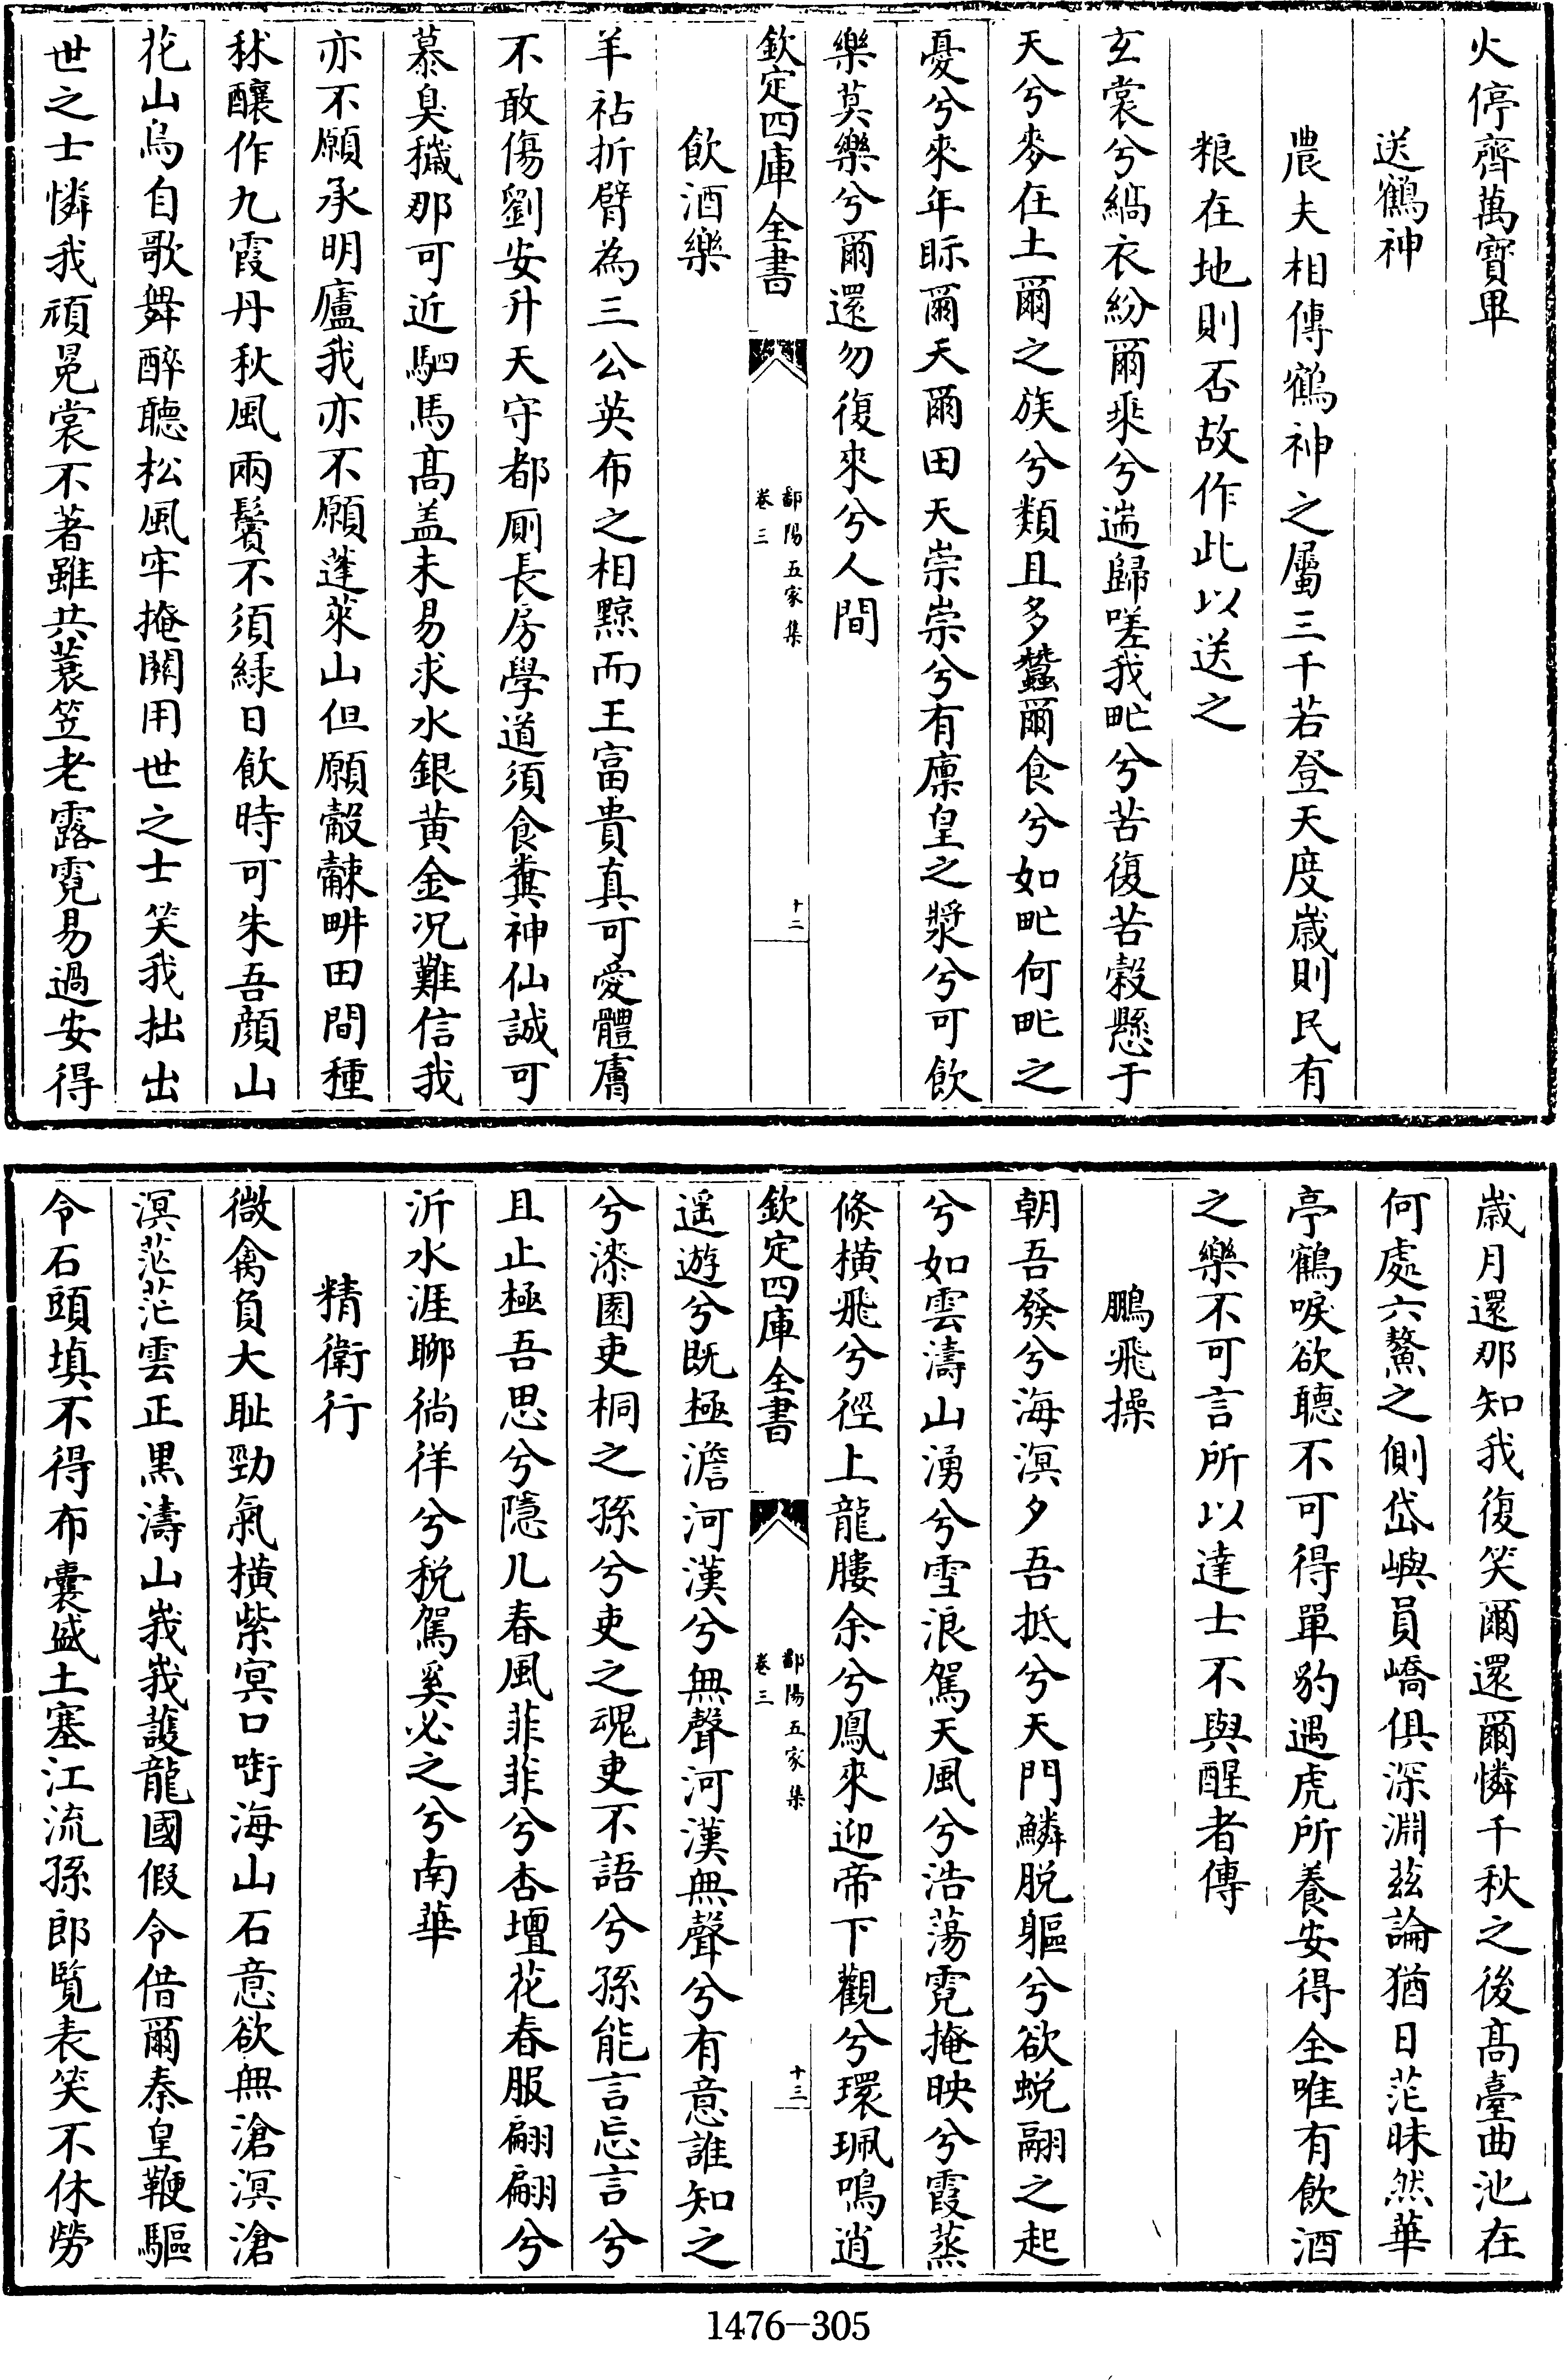 火停齊萬寶畢
送鶴神
農夫相傳鶴神之屬三千若登天度歲則民有
粮在地則否故作此以送之
玄裳兮縞衣紛爾乘兮遄歸嗟我甿兮苦復苦穀懸于
天兮麥在土爾之族兮類且多蠶爾食兮如甿何甿之
憂兮來年眎爾天爾田天崇崇兮有廪皇之漿兮可飲
樂莫樂兮爾還勿復來兮人間
欽定四庫全書
鄱陽五家集
卷三
十二
飲酒樂
羊祜折臂為三公英布之相黥而王富貴真可愛體膚
不敢傷劉安升天守都厠長房學道須食糞神仙誠可
慕臭穢那可近駟馬髙盖未易求水銀黄金况難信我
亦不願承明廬我亦不願蓬萊山但願觳觫畊田間種
秫釀作九霞丹秋風兩鬢不須緑日飲時可朱吾顔山
花山鳥自歌舞醉聽松風牢掩關用世之士笑我拙出
世之士憐我頑冕裳不著雖共蓑笠老露霓易過安得
歲月還那知我復笑爾還爾憐千秋之後髙臺曲池在
何處六鰲之側岱嶼員嶠俱深淵兹論猶日茫昧然華
亭鶴唳欲聽不可得單豹遇虎所養安得全唯有飲酒
之樂不可言所以達士不與醒者傳
鵬飛操
朝吾發兮海溟夕吾抵兮天門鱗脱軀兮欲蜕翮之起
兮如雲濤山湧兮雪浪駕天風兮浩蕩霓掩映兮霞蒸
倐横飛兮徑上龍膢余兮鳳來迎帝下觀兮環珮鳴逍
欽定四庫全書
鄱陽五家集
卷三
十三
遥遊兮既極澹河漢兮無聲河漢無聲兮有意誰知之
兮漆園吏桐之孫兮吏之魂吏不語兮孫能言忘言兮
且止極吾思兮隱几春風菲菲兮杏壇花春服翩翩兮
沂水涯聊徜徉兮税駕奚必之兮南華
精衛行
微禽負大耻勁氣横紫㝠口㗸海山石意欲無滄溟滄
溟茫茫雲正黒濤山峩峩護龍國假令借爾秦皇鞭驅
令石頭填不得布囊盛土塞江流孫郎覧表笑不休勞
1476-305